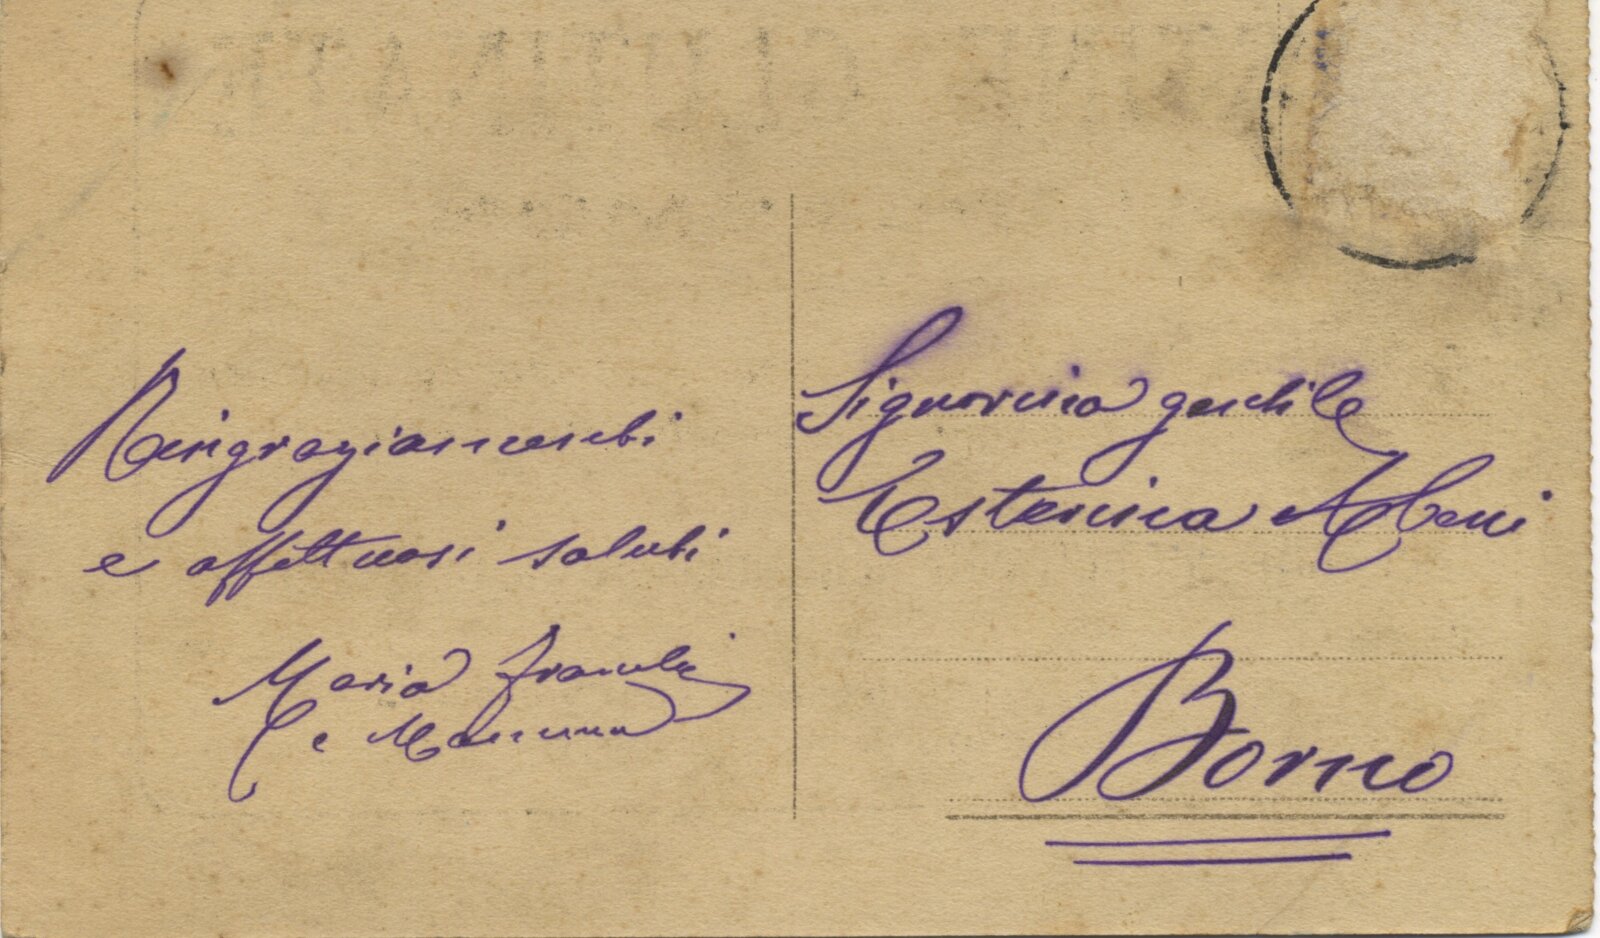 Ringraziamenti
e affettuosi saluti
Maria
e Mamma
Signorina gentile
Esterina Abeni
Borno